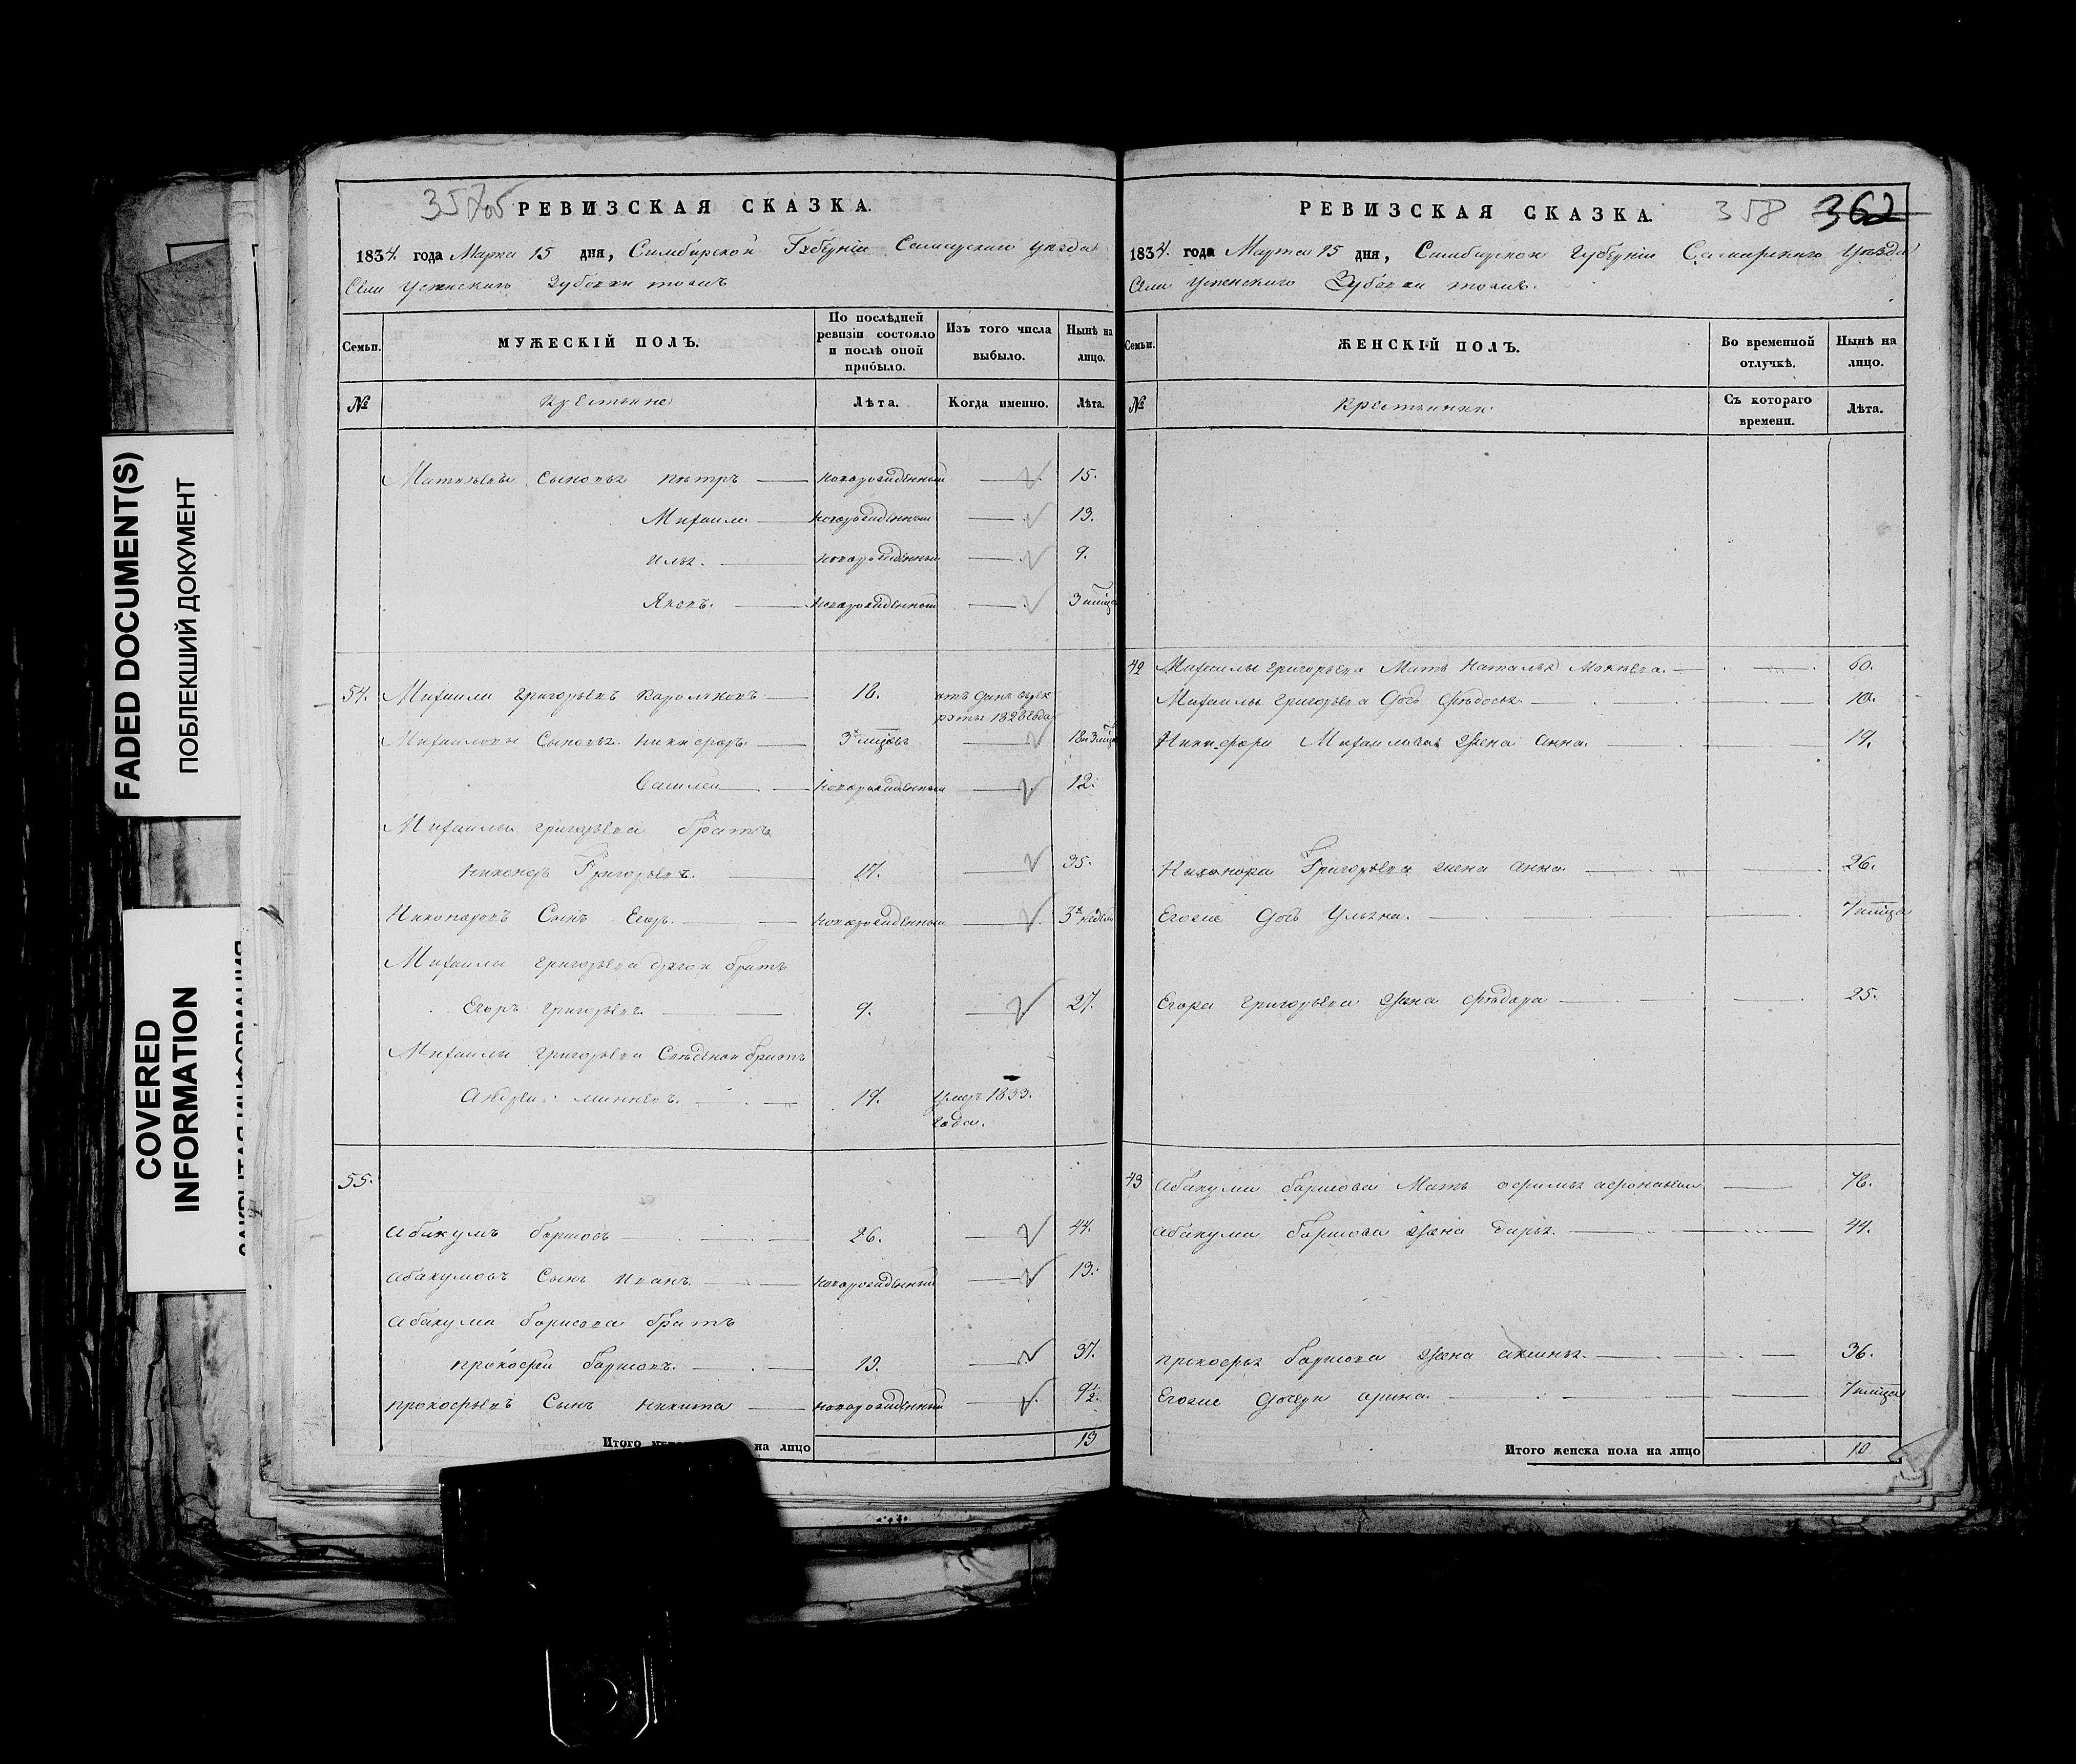 FADED DOCUMENT(S)
ПОБЛЕКШИЙ ДОКУМЕНТ
COVERED
INFORMATION
ЗАКРЫТАЯ ИНФОРМАЦИЯ
357об
РЕВИЗСКАЯ СКАЗКА.
1834. года Марта 15 дня, Симбирской Губернiи Самарскаго уезда
Села Успенскаго Зубовки тожъ
Семьи.
МУЖЕСКІЙ ПОЛЪ.
По послѣдней ревизіи состояло и послѣ оной прибыло.
Изъ того числа выбыло.
Нынѣ на лицо.
№
Крестьяне
Лѣта.
Когда именно.
Лѣта.
Матвѣевы Сыновья Пѣтръ новорожденный 15.
Михаила новорожденный 13.
Илья. новорожденный 9.
Яковъ. новорожденный 3 мѣсца
54. Михаила Григорьевъ 18.
1828 года
Михаиловы Сыновья Никифоръ. 3х мѣсцовъ 18 и 3 мѣсца
Василей новорожденный 12.
Михаилы Григорьева братъ
Никаноръ Григорьевъ. 17. 35.
Никаноровъ Сынъ Егоръ. новорожденный 3х недель
Михаилы Григорьева другой братъ
Егоръ Григорьевъ. 9. 27.
Михаилы Григорьева братъ
Андрей 19. умеръ 1833.
года.
55.
Абакумъ Борисовъ 26. 44.
Абакумовъ Сынъ Иванъ. новорожденный 13.
Абакума Борисова братъ
Прокофей Борисовъ. 19. 37.
Прокофьевъ Сынъ Никита новорожденный 9 1/2.
Итого на лицо 13
РЕВИЗСКАЯ СКАЗКА.
358 362
1834. года Марта 15 дня, Симбирской Губернiи Самарскаго Уѣзда
Села Успенскаго Зубовки тожъ.
Семьи.
ЖЕНСКІЙ ПОЛЪ.
Во временной отлучкѣ.
Нынѣ на лицо.
№
Крестьянки
Съ котораго времени.
Лѣта.
42 Михаилы Григорьева Мать Наталья 60.
Михаилы Григорьева Дочь Федосья. 10.
Никифора Михаилова Жена Анна. 19.
Никанора Григорьева жена Анна. 26.
Егоже Дочь Ульяна. 7 мѣсца
Егора Григорьева Жена Федора 25.
43 Абакума Борисова Мать 76.
Абакума Борисова Жена Дарья. 44.
Прокофья Борисова Жена Аксинья. 36.
Егоже Дочери Арина. 7 мѣсца
Итого женска пола на лицо 10